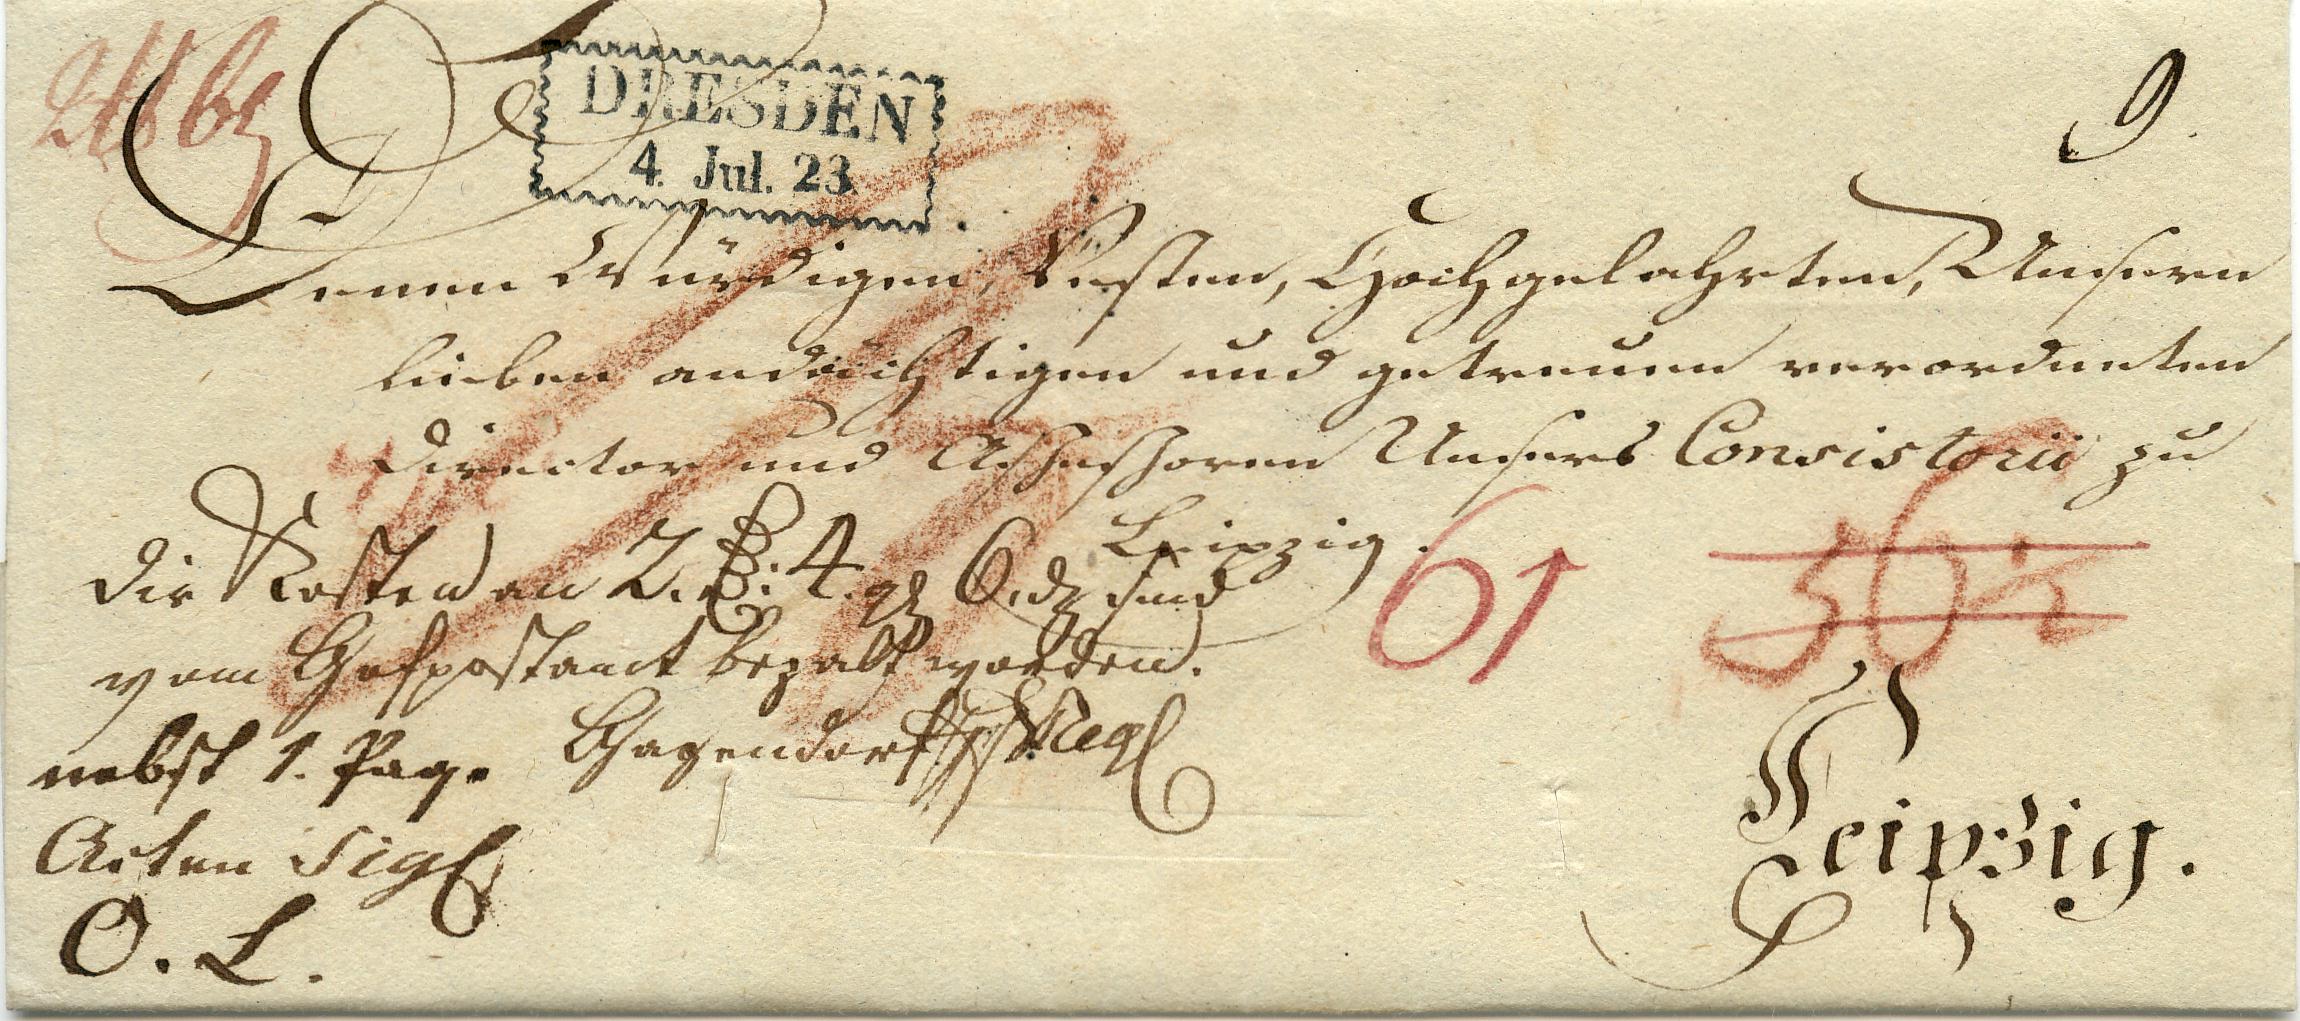 DRESDEN
4. Jul. 23.
9.
Denen Würdigen, Vesten, Hochgelahrten, Unsern
lieben andächtigen und getreuen verordneten
Director und Assessoren Unsers Consistorii zu
Leipzig.
Die Kosten an 2. 4. 6. sind
vom Hofpostamt bezalt worden.
nebst 1. Paq.
Acten Sig.
O. L.
61
Leipzig.